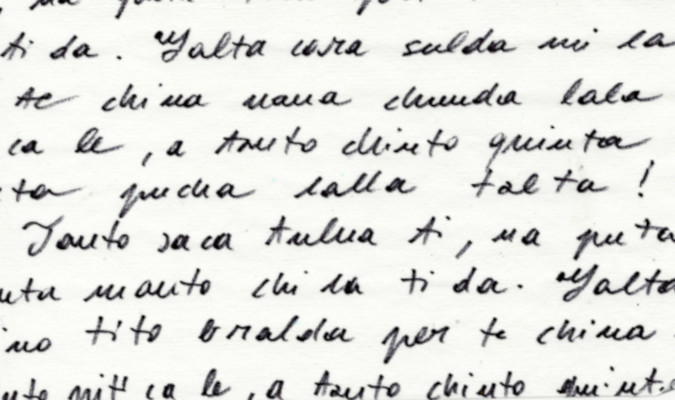 ti da. Yalta cosa sulda mi la
te china nana chunda lala
ca le, a tanto chinto quinta
ta pucha lalla talta!
Tanto saca tulua ti, na puta
nta manto chi la ti da. Yalta
ino tito eralda per te china
nto ca le, a tanto chinto